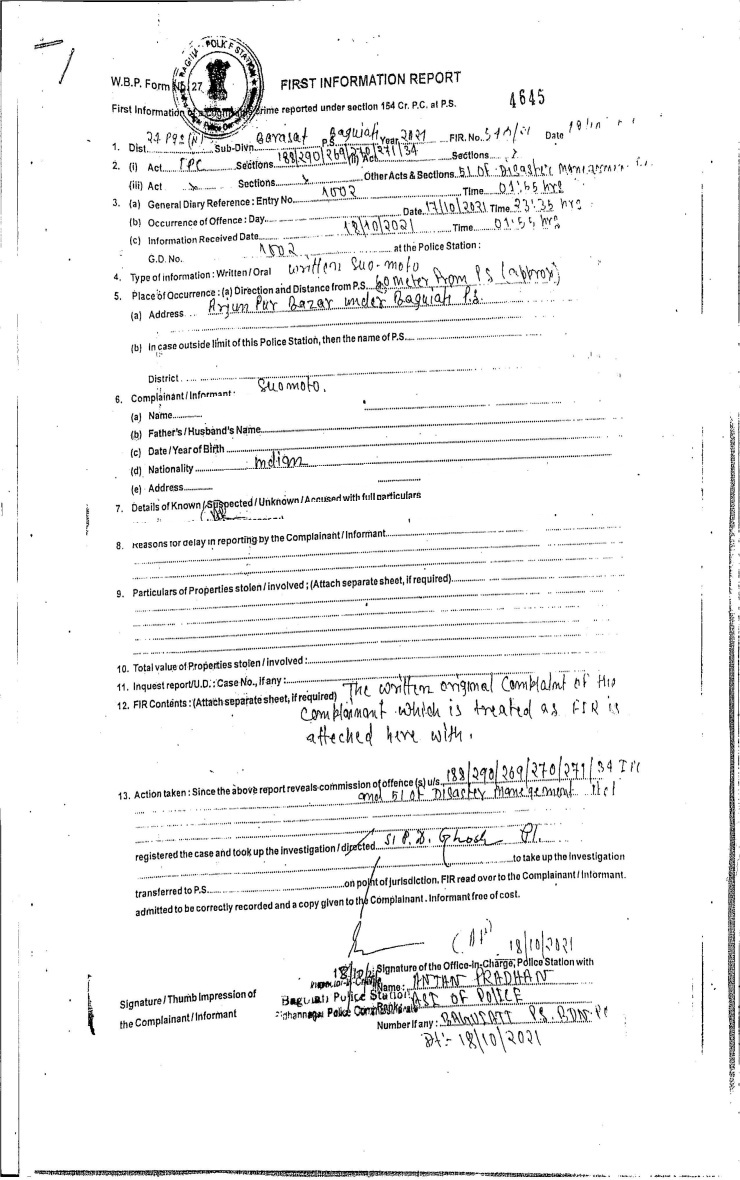 BAGUIATI POLICE STATION
W.B.P. Form No. 27
FIRST INFORMATION REPORT
4645
First Information of a Cognizable Crime reported under section 154 Cr. P.C. at P.S.
1. Dist. 24 Pgs (N) Sub-Divn. Barasat P.S. Baguiati Year 2021 FIR. No. Date
2. (i) Act IPC Sections 188/290/269/270/271/34 Act Sections x
(iii) Act x Sections x Other Acts & Sections 51 OF Disaster Management
3. (a) General Diary Reference : Entry No. 1002 Time 01:55 hrs
(b) Occurrence of Offence : Day Date 17/10/2021 Time 23:35 hrs
(c) Information Received Date 18/10/2021 Time 01:55 hrs
G.D. No. 1002 at the Police Station :
4. Type of information : Written / Oral written Suo-moto
5. Place of Occurrence : (a) Direction and Distance from P.S. meter from PS (approx)
(a) Address Arjun Pur Bazar under Baguiati P.S.
(b) In case outside limit of this Police Station, then the name of P.S.
District
6. Complainant / Informant : Suomoto.
(a) Name
(b) Father's / Husband's Name
(c) Date / Year of Birth
(d) Nationality Indian
(e) Address
7. Details of Known / Suspected / Unknown / Accused with full particulars
8. Reasons for delay in reporting by the Complainant / Informant
9. Particulars of Properties stolen / involved ; (Attach separate sheet, if required)
10. Total value of Properties stolen / involved :
11. Inquest report / U.D. : Case No., if any :
12. FIR Contents : (Attach separate sheet, if required) The written original Complaint of the
Complainant which is treated as FIR is
atteched here with.
13. Action taken : Since the above report reveals commission of offence (s) u/s 188/290/269/270/271/34 IPC
and 51 of Disaster Management Act
registered the case and took up the investigation / directed SI P.D. Ghosh
to take up the investigation
transferred to P.S. on point of jurisdiction. FIR read over to the Complainant / Informant.
admitted to be correctly recorded and a copy given to the Complainant . Informant free of cost.
18/10/2021
18/10/21
Signature of the Office-In-Charge, Police Station with
Inspector-in-Charge
Name : ANJAN PRADHAN
Baguiati Police Station
Rank : OF POLICE
Bidhannagar Police Commissionerate
Number if any : BAGUIATI PS. BDN. PC
Dt:- 18/10/2021
Signature / Thumb Impression of
the Complainant / Informant